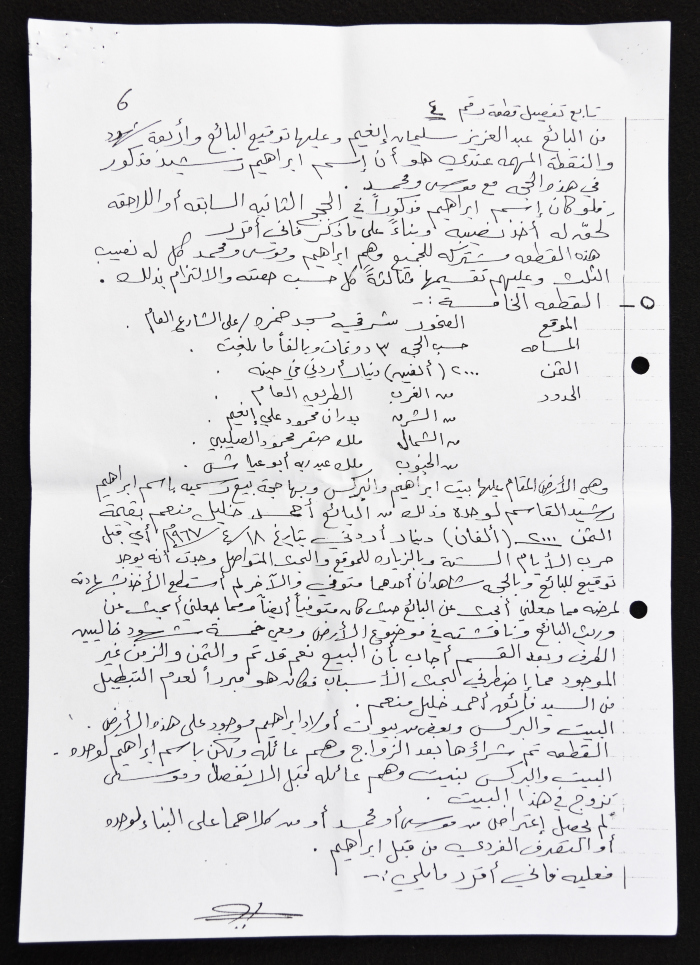 6
تابع تفصيل قطعة رقم ٤
من البائع عبد العزيز سليمان إنغيم وعليها توقيع البائع وأربعة شهود
والنقطة المهمه عندي هو أن إسم ابراهيم رشيد مذكور
في هذه الحجه مع موسى ومحمد .
فلو كان إسم ابراهيم مذكوراً في الحجج الثانيه السابقه أو اللاحقه
لحق له أخذ نصيبه وبناءً على ما ذكر فاني أقرر
هذه القطعه مشتركه للجميع وهم ابراهيم وموسى ومحمد كل له نصيب
الثلث وعليهم تقسيمها مثالثةً كل حسب حصته والالتزام بذلك .
القطعه الخامسة :-
الموقع الصخور شرقي مسجد حمزه / على الشارع العام
المساحه حسب الحجه ٣ دونمات وبالغاً ما بلغت .
الثمن ٢٠٠٠ (ألفين) دينار أردني في حينه .
الحدود من الغرب الطريق العام
من الشرق بدران محمود علي إنغيم .
من الشمال ملك صقر محمود الصليبي .
من الجنوب ملك عبد ربه أبو عياش
وهي الأرض المقام عليها بيت ابراهيم والبركس وبها حجة بيع رسميه باسم ابراهيم
رشيد القاسم لوحده وذلك من البائع أحمد خليل منعم بقيمة
الثمن ٢٠٠٠ (ألفان) دينار أردني بتاريخ ١٨/٤/١٩٦٧م أي قبل
حرب الأيام الستة وبالزياره للموقع والبحث المتواصل وجدت أنه يوجد
توقيع للبائع وبالحجه شاهدان أحدهما متوفي والآخر لم أستطع الأخذ بشهادته
لمرضه مما جعلني أبحث عن البائع حيث كان متوفياً أيضاً مما جعلني أبحث عن
وريث البائع وناقشته في موضوع الأرض ومعي خمسة شهود خاليين
الطرف وبعد القسم أجاب بأن البيع نعم قد تم والثمن والزمن غير
الموجود مما إضطرني لبحث الأسباب فكان هو مبرراً لعدم التبطيل
من السيد فائق أحمد خليل منعم .
البيت والبركس وبعض من بيوت أولاد ابراهيم موجود على هذه الأرض .
القطعه تم شراؤها بعد الزواج وهم عائله ولكن باسم ابراهيم لوحده .
البيت والبركس بنيت وهم عائله قبل الانفصال وموسى
تزوج في هذا البيت .
لم يحصل إعتراض من موسى أو محمد أو من كلاهما على البناء لوحده
أو التصرف الفردي من قبل ابراهيم .
فعليه فاني أقرر ما يلي :-